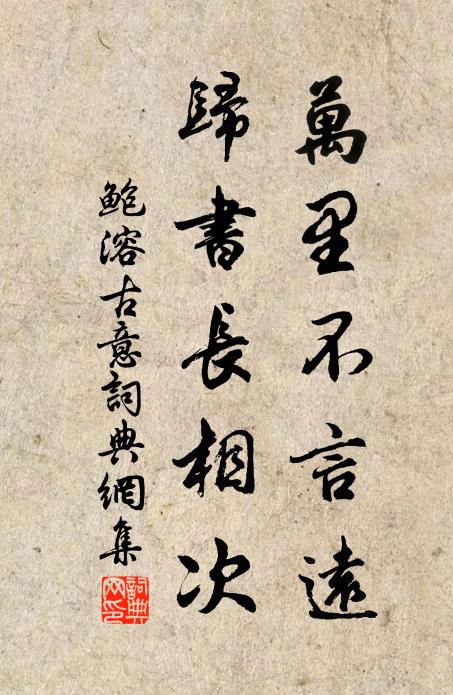 萬里不言遠
歸書長相次
鮑溶古意詞典網集
詞典网印